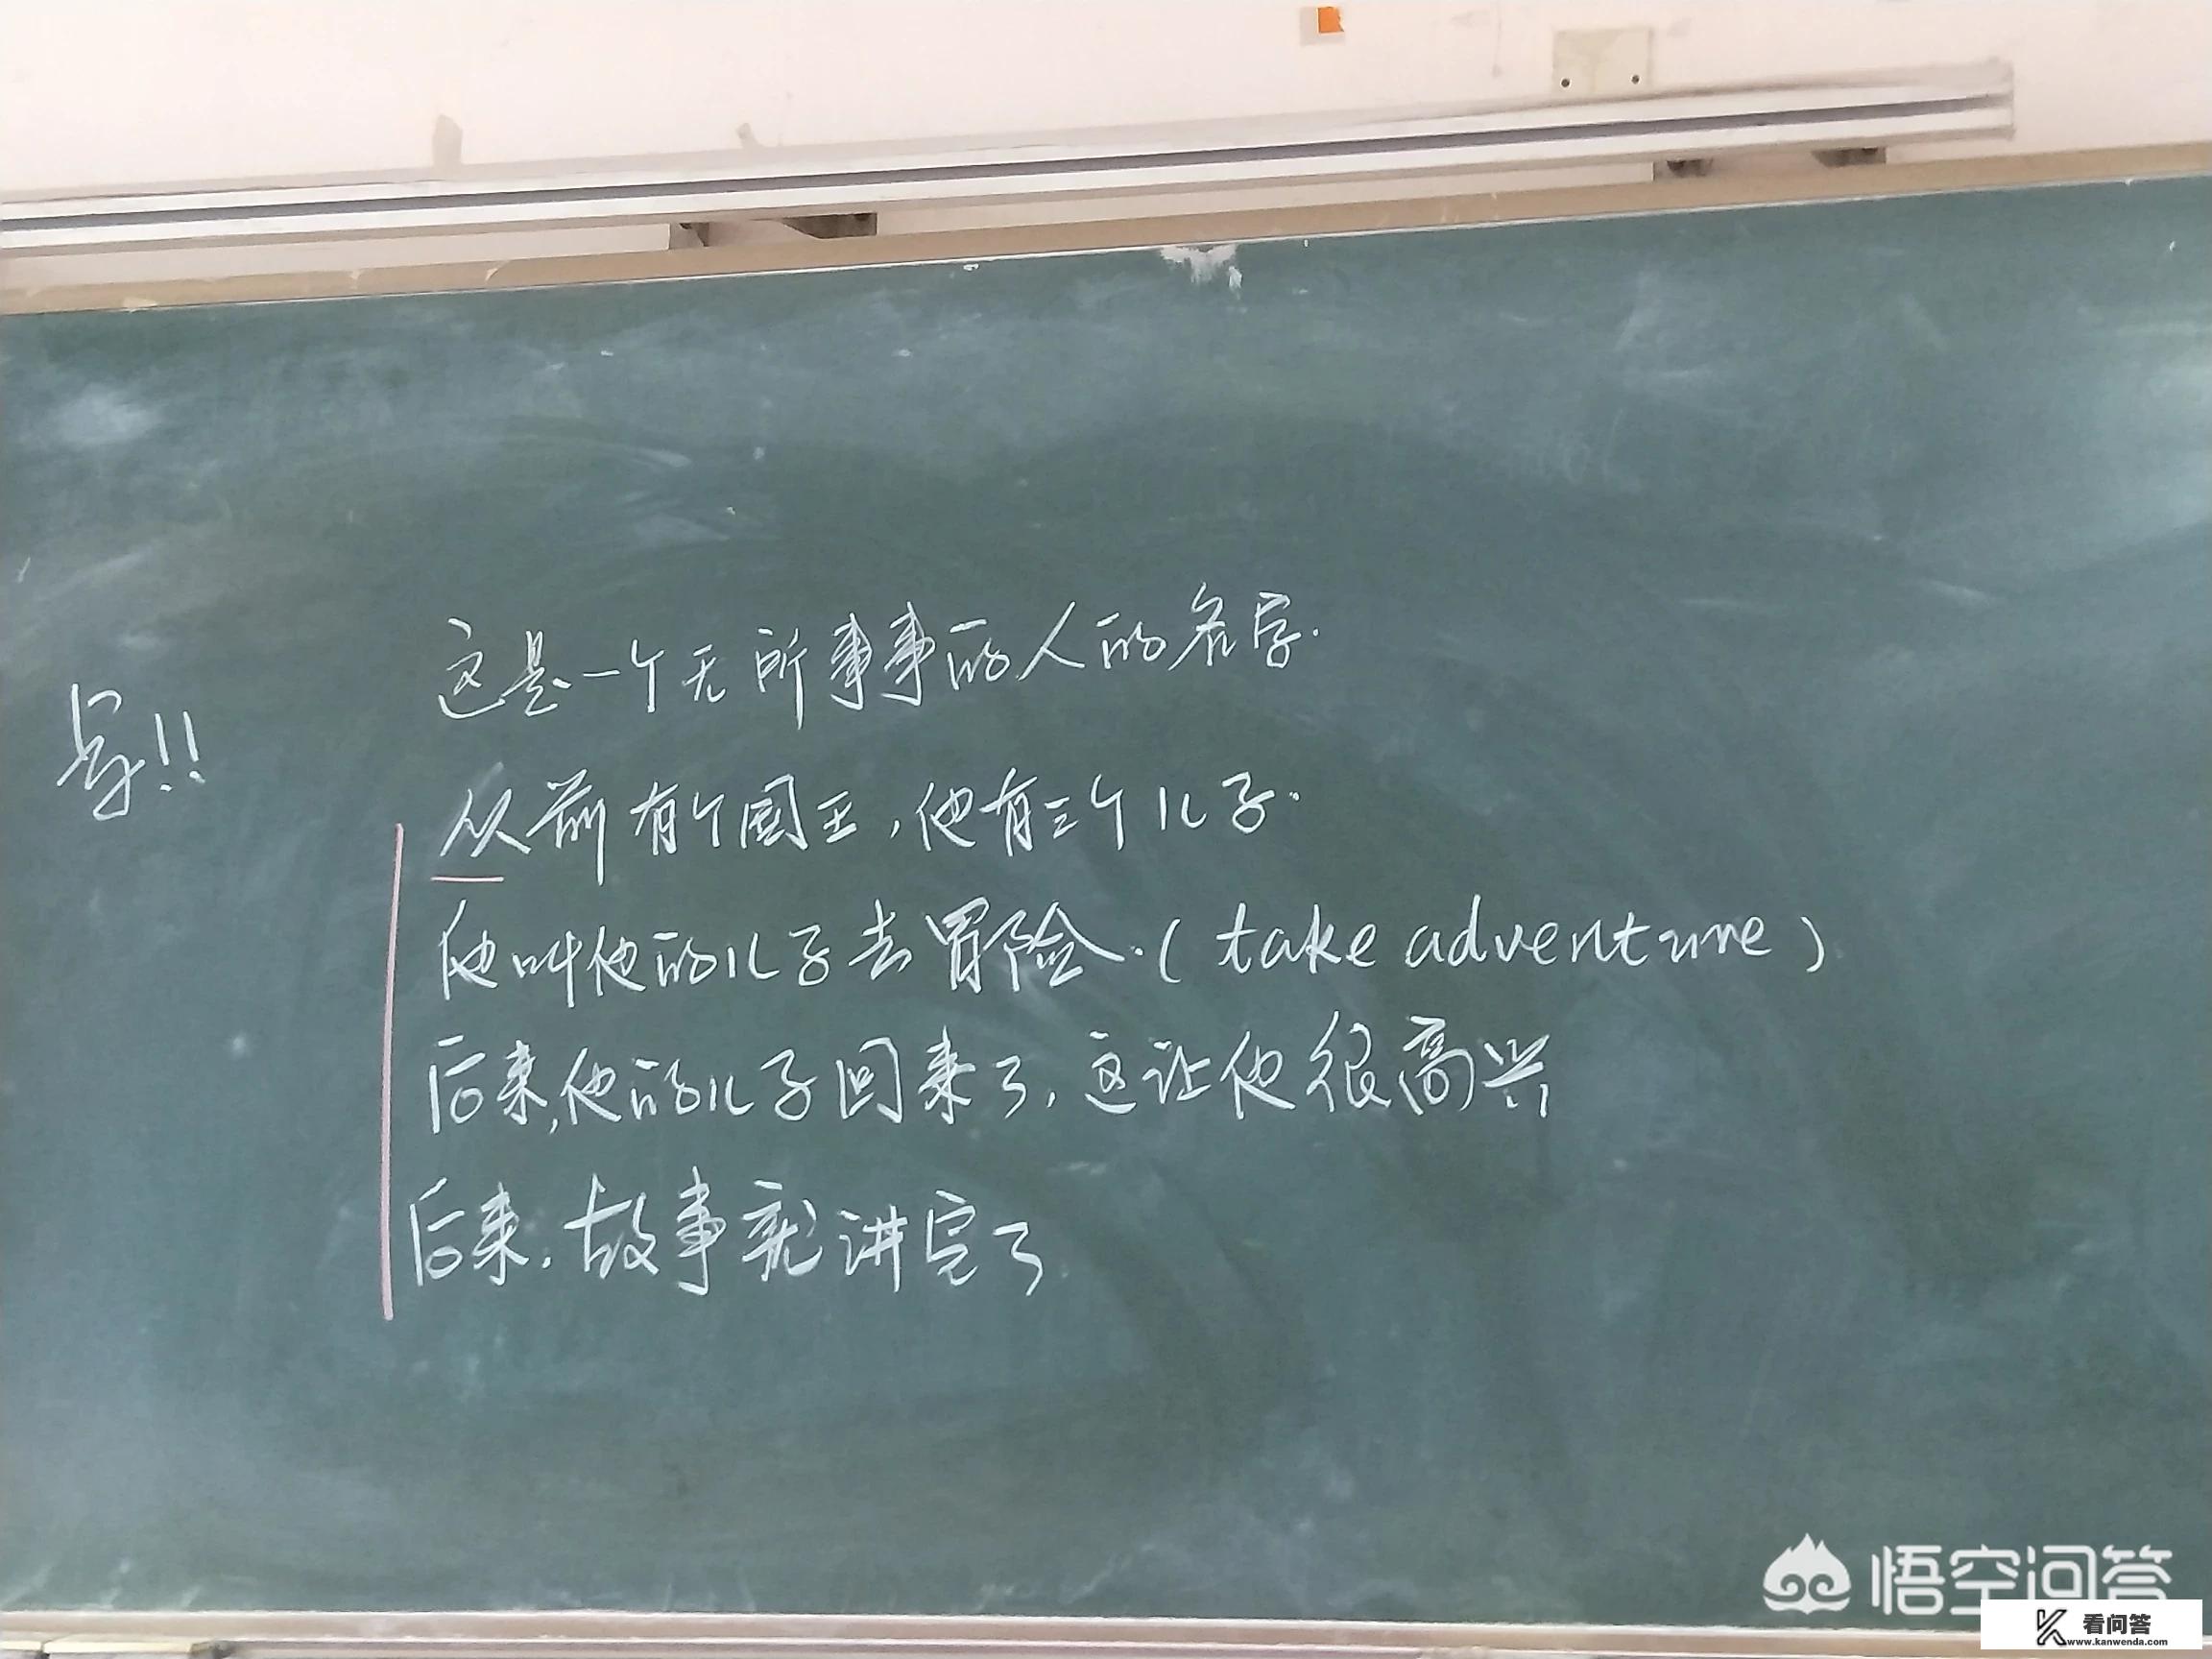 这是一个无所事事的人的名字.
从前有个国王,他有三个儿子.
他叫他的儿子去冒险.(take adventure)
后来,他的儿子回来了,这让他很高兴
后来,故事就讲完了
悟空问答
看问答
www.kanwenda.com